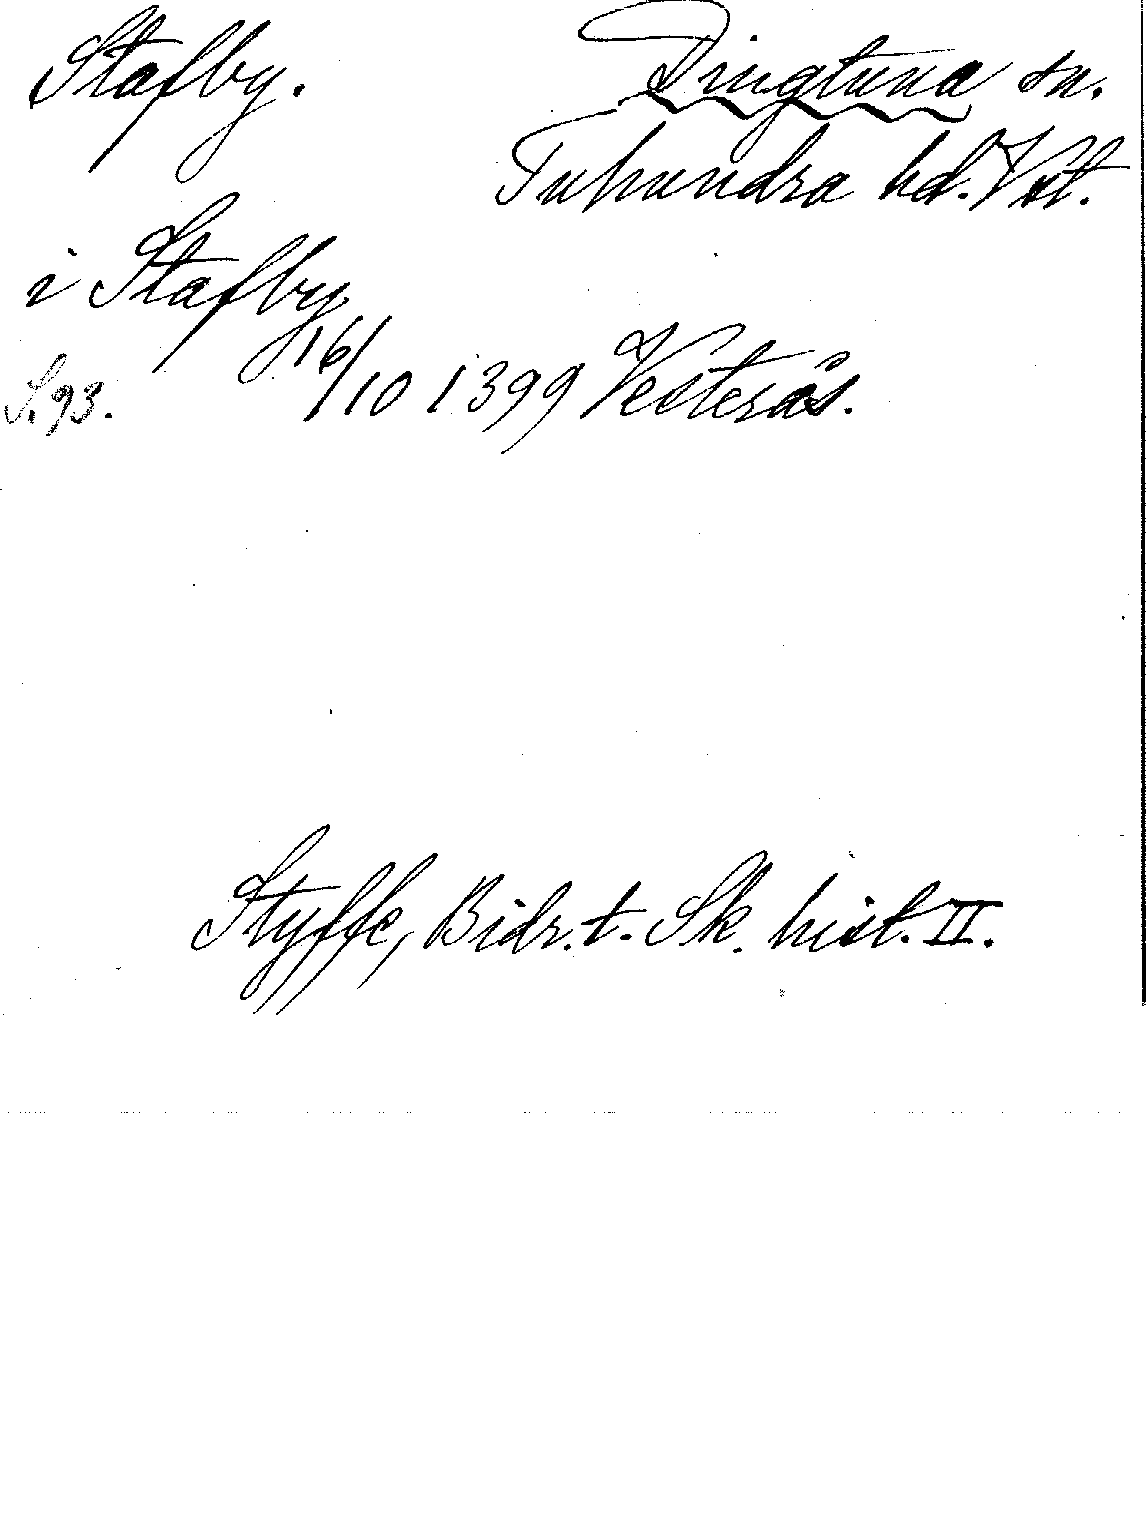 Stafby.
Dingtuna sn.
Tuhundra hd. Vst.
i Stafby
S. 93.
16/10 1399 Vesterås.
Styffe, Bidr. t. Sk. hist. II.